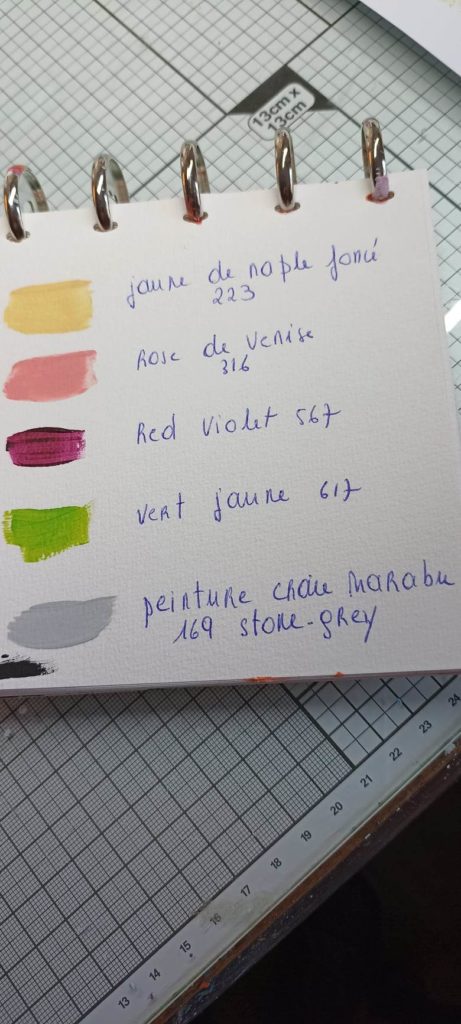 13cm x
13cm
jaune de naple foncé
223
Rose de Venise
316
Red Violet 567
vert jaune 617
peinture craie Marabu
169 stone-grey
24
23
22
21
20
19
18
17
16
15
14
13